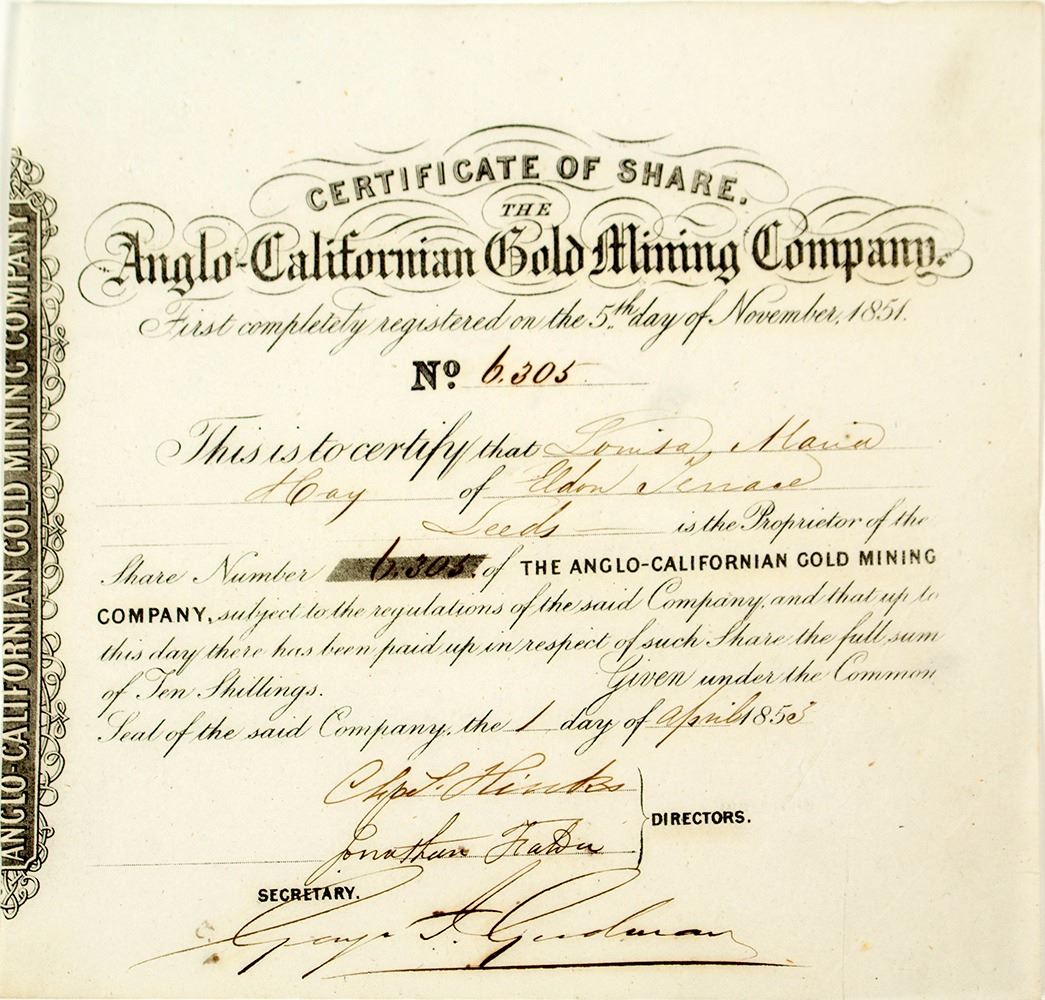 CERTIFICATE OF SHARE.
THE
Anglo-Californian Gold Mining Company.
First completely registered on the 5th day of November, 1851.
No 6.305
This is to certify that Louisa Maria
Hay of Eldon Terrace
Leeds is the Proprietor of the
Share Number 6.305. of THE ANGLO-CALIFORNIAN GOLD MINING
COMPANY, subject to the regulations of the said Company, and that up to
this day there has been paid up in respect of such Share the full sum
of Ten Shillings. Given under the Common
Seal of the said Company, the 1 day of April 1853
Hincks
DIRECTORS.
Jonathan
SECRETARY.
George Goodman
ANGLO-CALIFORNIAN GOLD MINING COMPANY